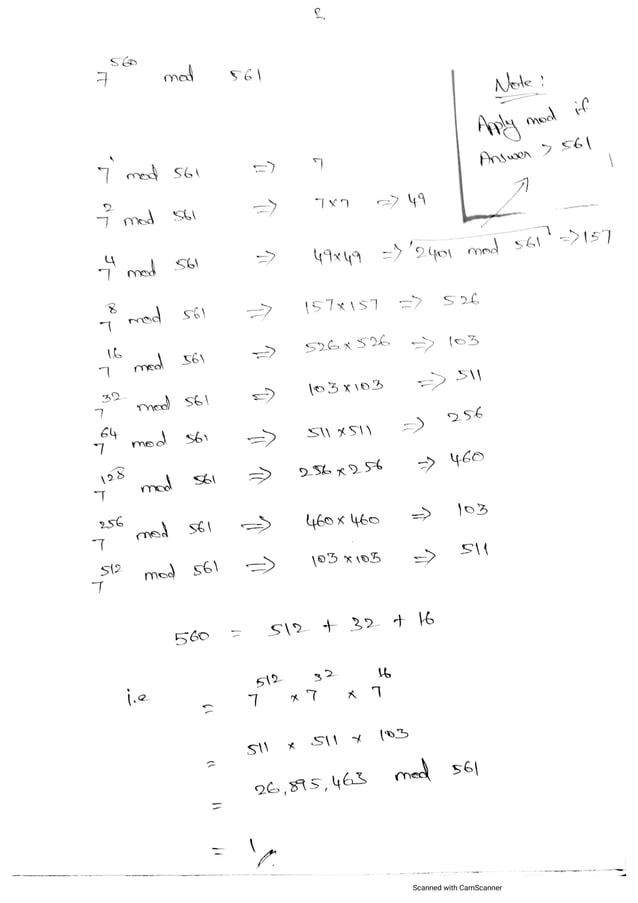 2
7^560 mod 561
Note:
Apply mod if
Answer > 561
7^1 mod 561 => 7
7^2 mod 561 => 7x7 => 49
7^4 mod 561 => 49x49 => '2401 mod 561' => 157
7^8 mod 561 => 157x157 => 526
7^16 mod 561 => 526x526 => 103
7^32 mod 561 => 103x103 => 511
7^64 mod 561 => 511x511 => 256
7^128 mod 561 => 256x256 => 460
7^256 mod 561 => 460x460 => 103
7^512 mod 561 => 103x103 => 511
560 = 512 + 32 + 16
i.e = 7^512 x 7^32 x 7^16
= 511 x 511 x 103
= 26,895,463 mod 561
= 1
Scanned with CamScanner